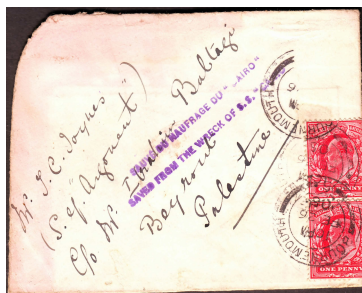 Mr. J. C. Joynes
(S. of Argonaut)
c/o Mr. Ibrahim Baltagi
Beyrout
Palestine
NAUFRAGE DU "CAIRO"
SAVED FROM THE WRECK OF S.S.
BOURNEMOUTH
ONE PENNY
ONE PENNY